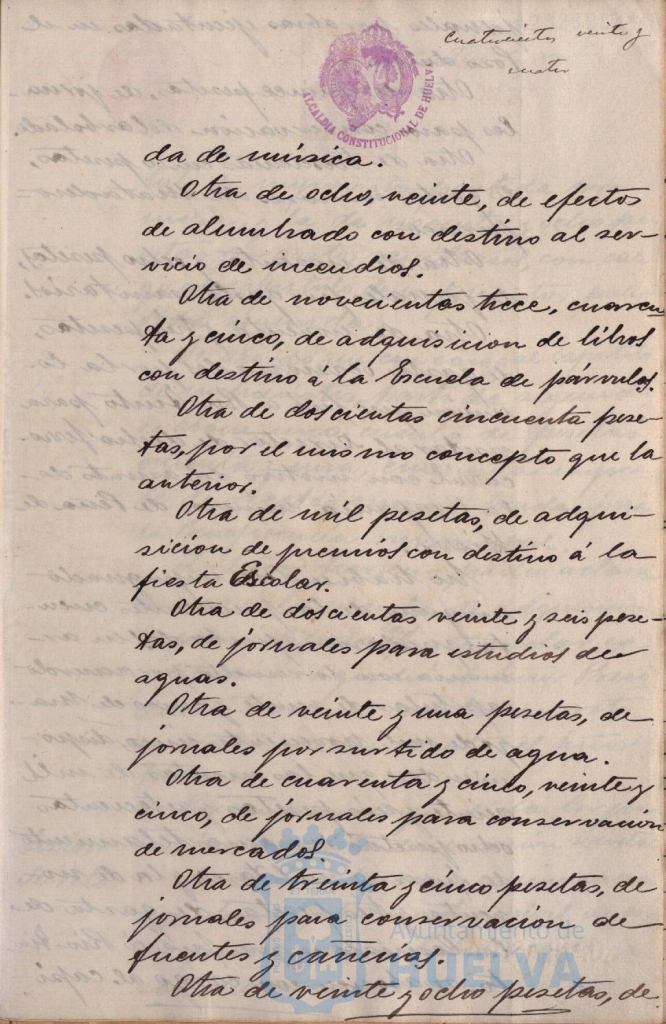 Cuatrocientos veinte y
cuatro
ALCALDIA CONSTITUCIONAL DE HUELVA
da de música.
Otra de ocho, veinte, de efectos
de alumbrado con destino al ser-
vicio de incendios.
Otra de novecientas trece, cuaren-
ta y cinco, de adquisicion de libros
con destino á la Escuela de párvulos.
Otra de doscientas cincuenta pese-
tas, por el mismo concepto que la
anterior.
Otra de mil pesetas, de adqui-
sicion de premios con destino á la
fiesta Escolar.
Otra de doscientas veinte y seis pese-
tas, de jornales para estudios de
aguas.
Otra de veinte y una pesetas, de
jornales por surtido de agua.
Otra de cuarenta y cinco, veinte y
cinco, de jornales para conservación
de mercados.
Otra de treinta y cinco pesetas, de
jornales para conservacion de
fuentes y cañerias.
Otra de veinte y ocho pesetas, de
Ayuntamiento de
HUELVA